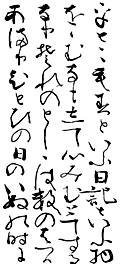 をとこもすといふ日記といふ物
をゝむなもして心みむとてする
なりそれのとしのしはすのはつか
あまりひとひの日のいぬの時に